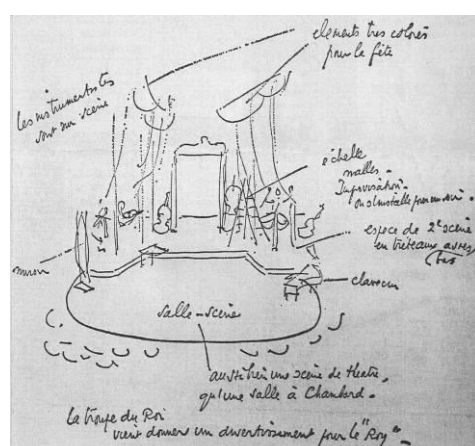 elements tres colorés
pour la fête
les instrumentistes
sont sur scène
échelle
malles -
Improvisation -
on s'installe pour un soir -
espece de 2e scène
en tréteaux assez
bas
miroir
clavecin
salle-scène
aussi bien une scène de theatre,
qu'une salle à Chambord -
la troupe du Roi
vient donner un divertissement pour le "Roy" -